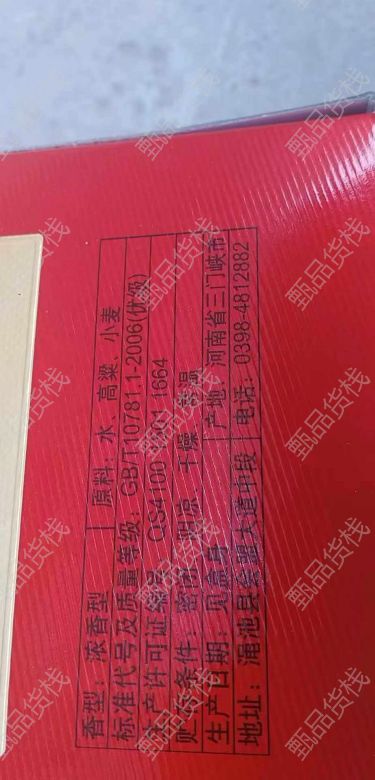 香型：浓香型 原料：水、高粱、小麦
标准代号及质量等级：GB/T10781.1-2006(优级)
生产许可证编号：QS4100 1501 1664
贮存条件：密闭、阴凉、干燥、常温
生产日期：见盒身 产地：河南省三门峡市
地址：渑池县会盟大道中段 电话：0398-4812882
甄品货栈
甄品货栈
甄品货栈
甄品货栈
甄品货栈
甄品货栈
甄品货栈
甄品货栈
甄品货栈
甄品货栈
甄品货栈
甄品货栈